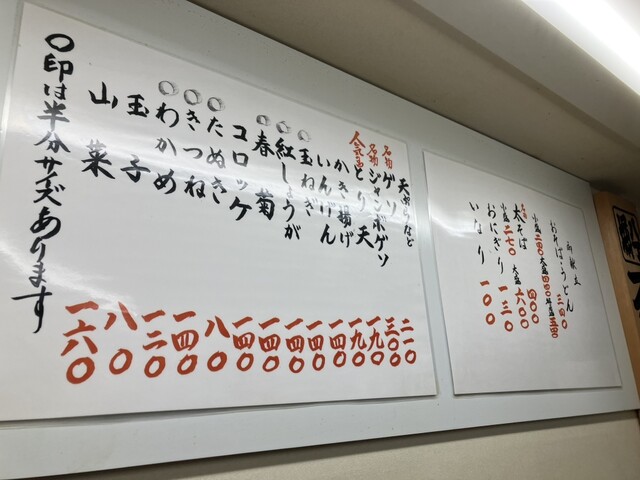 御献立
おそば・うどん 三四〇
小盛 二四〇 大盛 四四〇 特盛 五四〇
太そば 四〇〇
小盛 二七〇 大盛 六〇〇
おにぎり 一三〇
いなり 一〇〇
天ぷらなど
名物 ゲソ 二一〇
名物 ジャンボゲソ 三〇〇
人気品 とり天 一九〇
かき揚げ 一九〇
いんげん 一四〇
○玉ねぎ 一四〇
○紅しょうが 一四〇
○春菊 一四〇
コロッケ 一四〇
○たぬき 八〇
○きつね 一四〇
○わかめ 一二〇
玉子 八〇
山菜 一六〇
○印は半分サイズあります